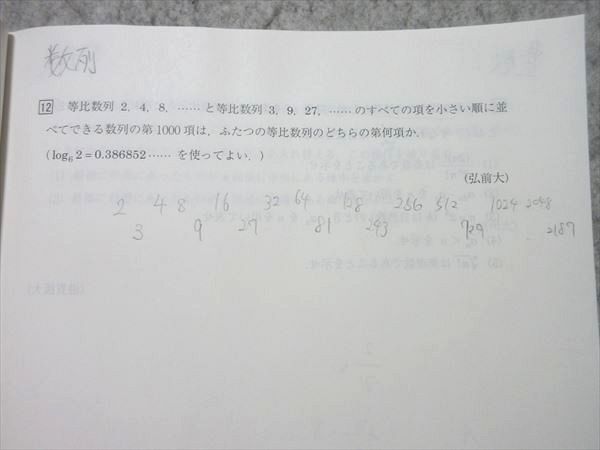 数列
12 等比数列 2, 4, 8, ……と等比数列 3, 9, 27, ……のすべての項を小さい順に並
べてできる数列の第1000項は, ふたつの等比数列のどちらの第何項か.
(log₆2=0.386852…… を使ってよい. )
(弘前大)
2 4 8 16 32 64 128 256 512 1024 2048
3 9 27 81 243 729 2187